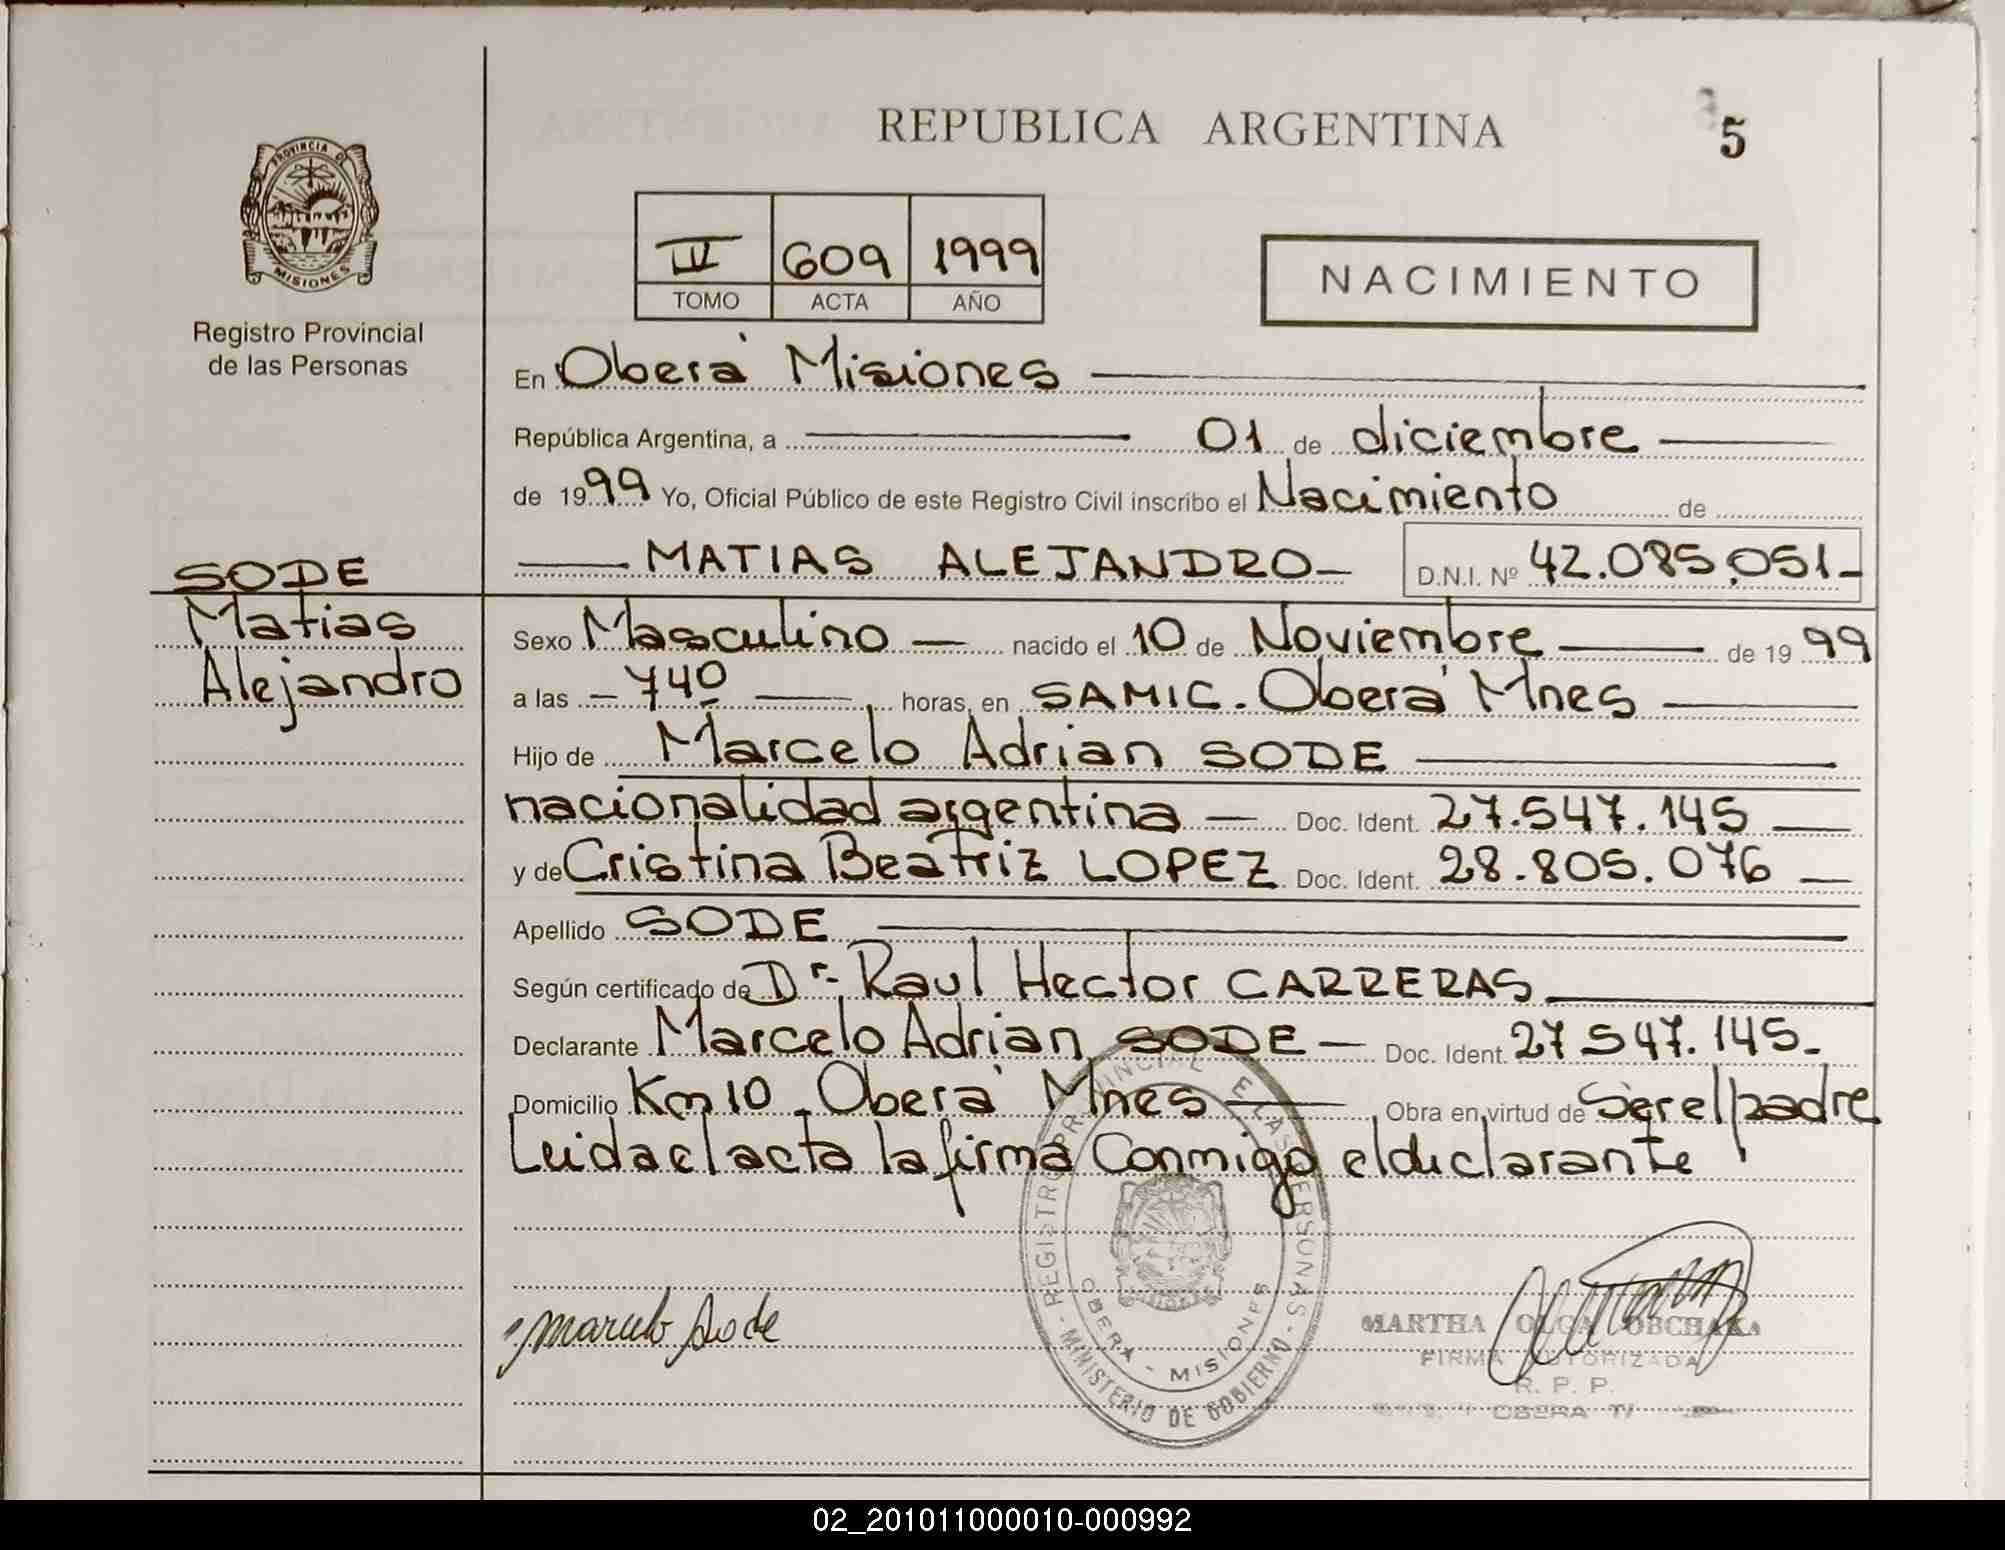 REPUBLICA ARGENTINA
5
PROVINCIA DE
MISIONES
Registro Provincial
de las Personas
IV 609 1999
TOMO ACTA AÑO
NACIMIENTO
En Oberá Misiones
República Argentina, a 01 de diciembre
de 1999 Yo, Oficial Público de este Registro Civil inscribo el Nacimiento de
MATIAS ALEJANDRO D.N.I. Nº 42.085.051
SODE
Matias
Alejandro
Sexo Masculino nacido el 10 de Noviembre de 1999
a las 740 horas, en SAMIC. Oberá Mnes
Hijo de Marcelo Adrian SODE
nacionalidad argentina Doc. Ident. 27.547.145
y de Cristina Beatriz LOPEZ Doc. Ident. 28.805.076
Apellido SODE
Según certificado de Dr. Raul Hector CARRERAS
Declarante Marcelo Adrian SODE Doc. Ident. 27 547.145
Domicilio Km 10 Oberá Mnes Obra en virtud de Ser el padre
Leida el acta la firma Conmigo el declarante
Marcelo Sode
REGISTRO PROVINCIAL E LAS PERSONAS
OBERA - MISIONES
- MINISTERIO DE GOBIERNO -
MARTHA OLGA OBCHAKA
FIRMA AUTORIZADA
R. P. P.
OBERA
02_201011000010-000992